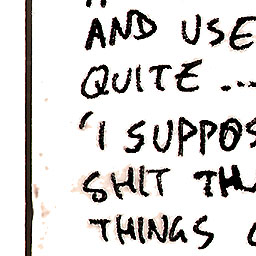 AND USE
QUITE ...
'I SUPPOS
SHIT THA
THINGS